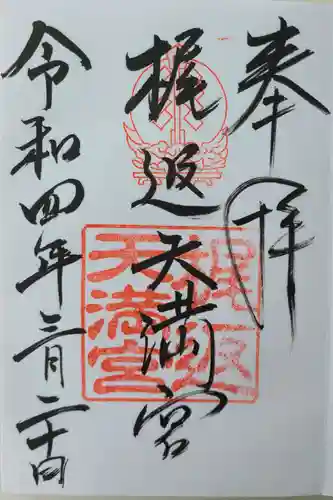 奉拝
梶返天満宮
梶返天満宮
令和四年三月二十日